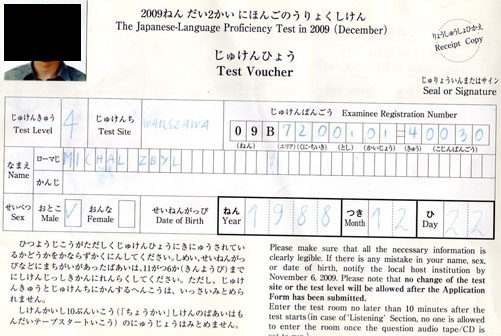 2009ねん だい2かい にほんごのうりょくしけん
The Japanese-Language Proficiency Test in 2009 (December)
りょうしゅうしょひかえ
Receipt Copy
じゅけんひょう
Test Voucher
じゅりょういんまたはサイン
Seal or Signature
じゅけんきゅう
Test Level
4
じゅけんち
Test Site
WARSZAWA
じゅけんばんごう Examinee Registration Number
09B7200101-40030
(ねん) (エリア) (くに・ちいき) (とし) (かいじょう) (きゅう) (こじんばんごう)
なまえ
Name
ローマじ
MICHAL ZBYL
かんじ
せいべつ
Sex
おとこ
Male
✓
おんな
Female
せいねんがっぴ
Date of Birth
ねん
Year
1988
つき
Month
12
ひ
Day
22
ひつようじこうがただしくじゅけんひょうにきにゅうされてい
るかどうかをかならずかくにんしてください。しめい、せいねんがっ
ぴなどにまちがいがあったばあいは、11がつ6か(きんようび)まで
にしけんじっしきかんにれんらくしてください。ただし、じゅけ
んきゅうとじゅけんちにかんするへんこうは、いっさいみとめら
れません。
しけんかいし10ぷんいこう(「ちょうかい」しけんのばあいはも
んだいテープスタートいこう)のにゅうじょうはみとめません。
Please make sure that all the necessary information is
clearly legible. If there is any mistake in your name, sex,
or date of birth, notify the local host institution by
November 6, 2009. Please note that no change of the test
site or the test level will be allowed after the Application
Form has been submitted.
Enter the test room no later than 10 minutes after the
test starts (in case of 'Listening' Section, no one is allowed
to enter the room once the question audio tape/CD is